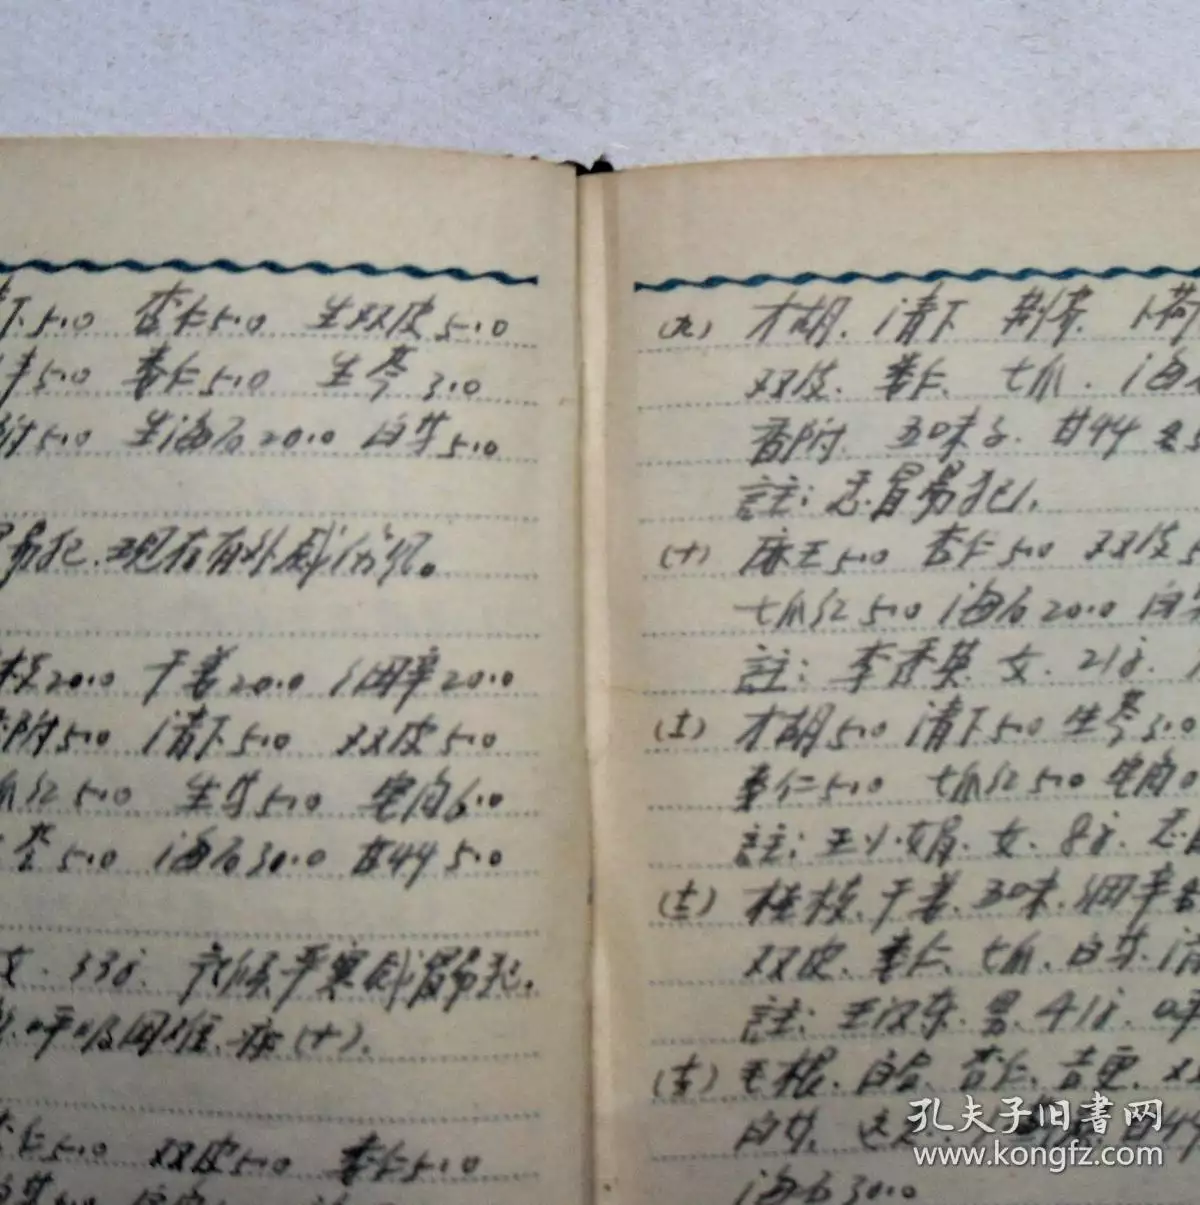 下5.0 杏仁5.0 生双皮5.0
5.0 娄仁5.0 生芩3.0
附5.0 生海石20.0 白芥5.0
易犯、现在有外感伤风。
枝20.0 干姜20.0 细辛20.0
附5.0 清下5.0 双皮5.0
爪红5.0 生芥5.0 6.0
5.0 海石30.0 甘草5.0
女、33才、气候严寒感冒易犯。
呼吸困难、痰(+)。
仁5.0 双皮5.0 娄仁5.0
(九) 才胡、清下 荆芥、卜荷
双皮、娄仁、七爪、海
香附、五味子、甘草
註：感冒易犯、
(十) 麻王5.0 杏仁5.0 双皮5
七爪红5.0 海石20.0 白
註：李香英 女、21才、
(十一) 才胡5.0 清下5.0 生芩3.0
娄仁5.0 七爪红5.0
註：王小娟、女、8才、感
(十二) 桂枝、干姜、五味、细辛
双皮、娄仁、七爪、白芥、清
註：王汉东、男、41才、呼
(十三) 毛根、白合、杏仁、
白芥、
海石30.0
孔夫子旧书网
www.kongfz.com